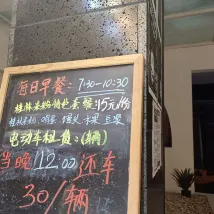 每日早餐: 7:30-10:30
桂林米粉特色套餐: 15元/份
鸡蛋 馒头 豆浆
电动车租赁: (辆)
当晚 12:00 还车
30/辆